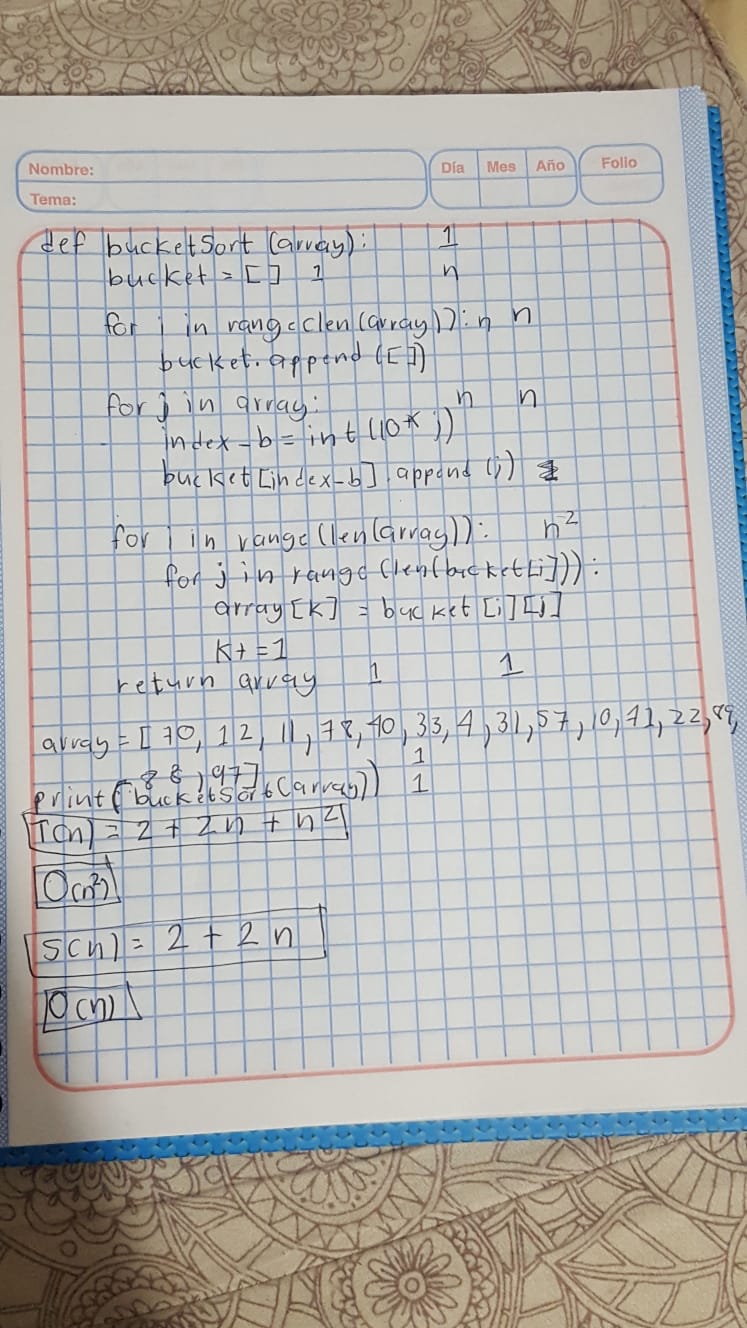 Nombre:
Día Mes Año
Folio
Tema:
def bucketSort (array): 1
bucket = [] 1 n
for i in range(len(array)): n n
bucket.append([])
for j in array: n n
index-b = int(10* j)
bucket[index-b].append(j)
for i in range(len(array)): n²
for j in range(len(bucket[i])):
array[k] = bucket[i][j]
k+=1
return array 1 1
array = [70, 12, 11, 78, 40, 33, 4, 31, 57, 10, 41, 22, 89,
88, 97] 1
print(bucketSort(array)) 1
T(n) = 2 + 2n + n²
O(n²)
S(n) = 2 + 2n
O(n)